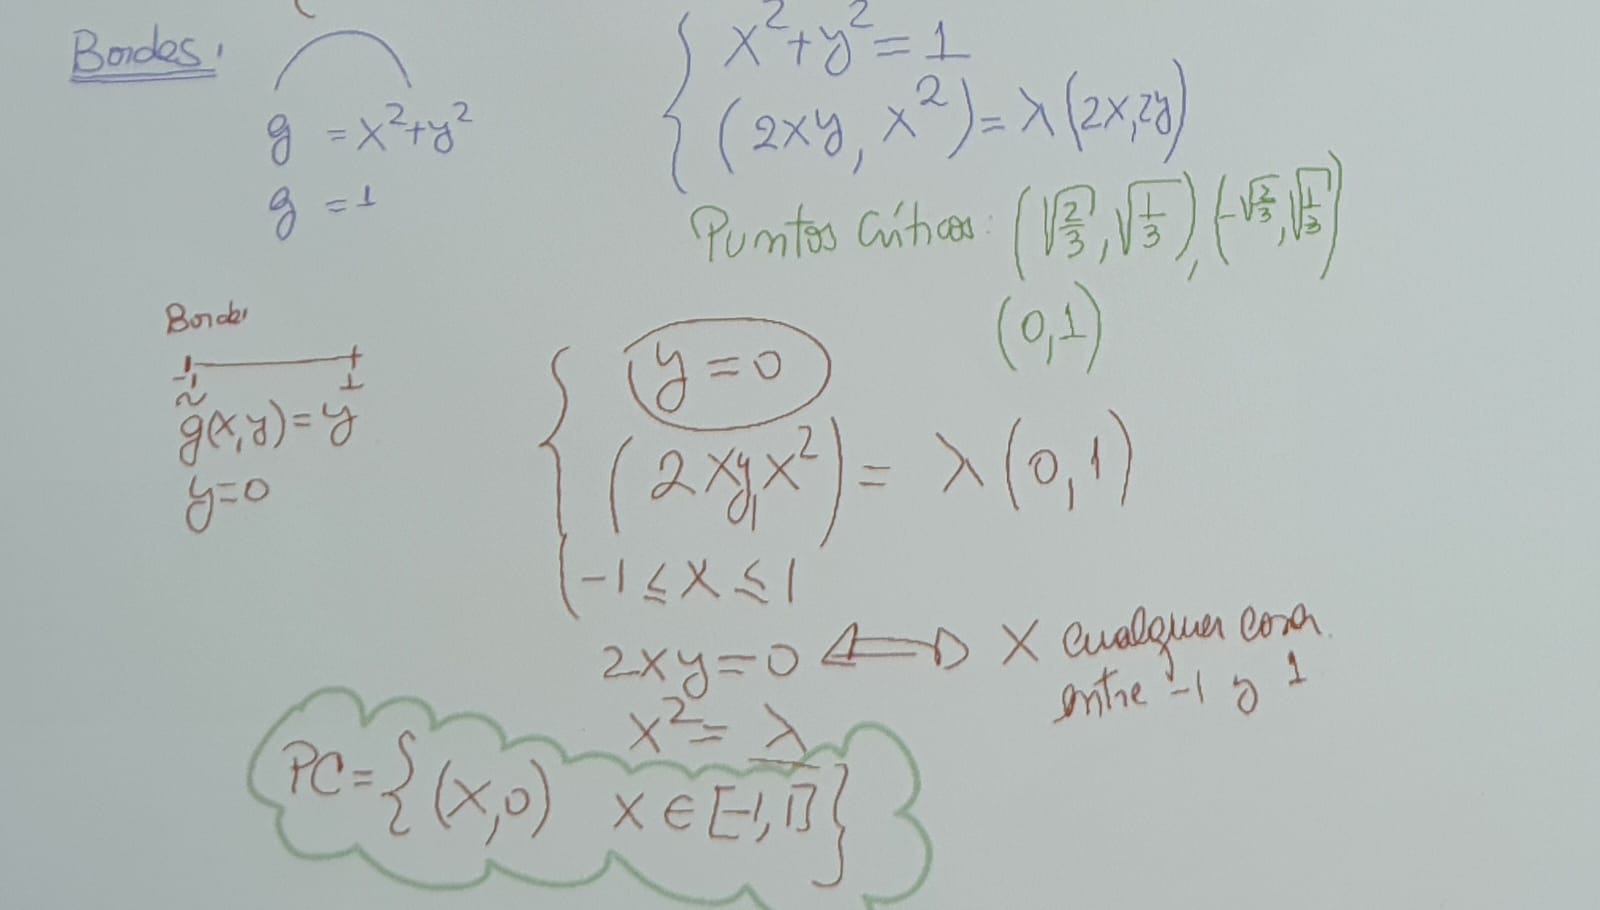 Bordes:
g = x²+y²
g = 1
{ x²+y² = 1
(2xy, x²) = λ(2x, 2y)
Puntos Críticos: (√(2/3), √(1/3)), (-√(2/3), √(1/3))
(0,1)
Borde:
-1 1
g̃(x,y) = y
y=0
{ y=0
(2xy, x²) = λ(0,1)
-1 ≤ x ≤ 1
2xy=0 ⟺ x cualquier cosa
entre -1 y 1
x² = λ
PC = {(x,0) x ∈ [-1,1]}